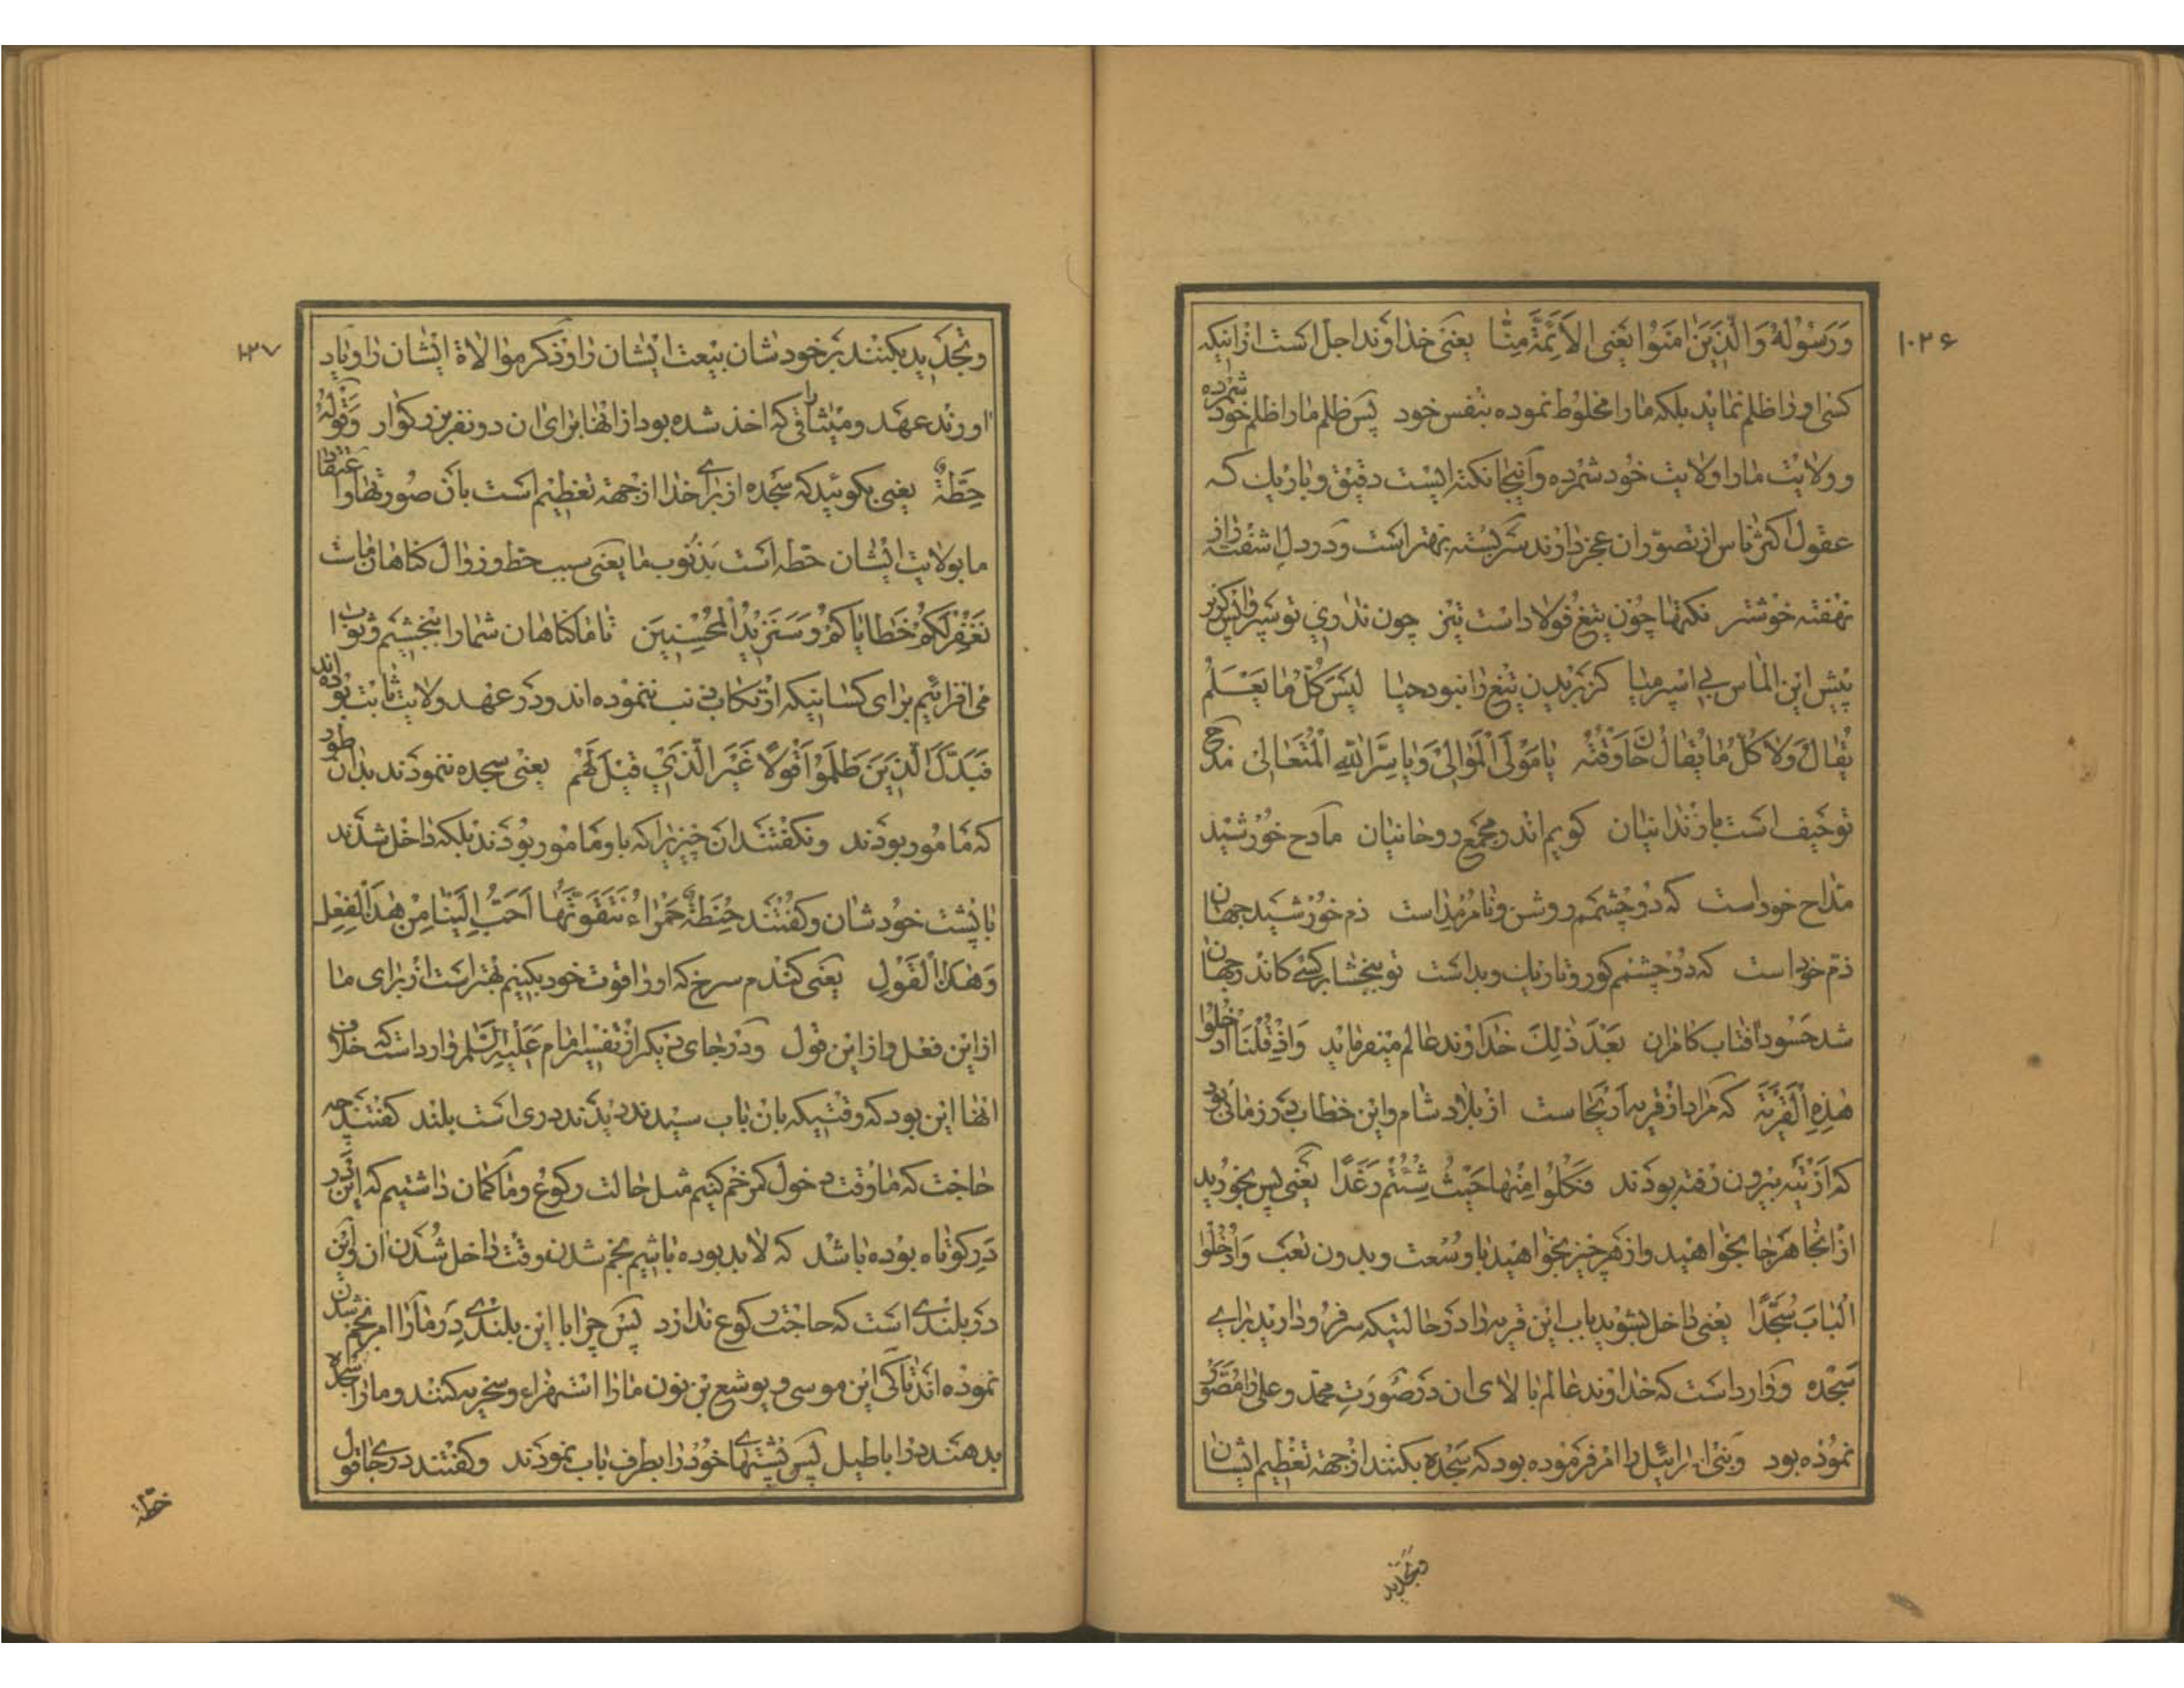 ۱۰۲۶
وَرَسُوْلُهُ وَالَّذِیْنَ اٰمَنُوا یَعْنِی الْاَئِمَّةُ مِنَّا یعنی خداوند اجل است از اینکه
کسی او را ظلم نماید بلکه ما را مخلوط نموده بنفس خود پس ظلم ما را ظلم خود شمرده
و ولایت ما را ولایت خود شمرده و آنجا نکته ایست دقیق و باریك که
عقول اکثر ناس از تصور ان عجز دارند سربسته بهتر است و در دل اشفته راز
نهفته خوشتر نکتها چون تیغ فولاد است تیز چون نداری تو سپر واپس گریز
پیش این الماس بی اسپر میا کز بریدن تیغ را نبود حیا لَیْسَ کُلُّ مٰا یَعْلَمُ
یُقٰالُ وَلٰا کُلُّ مٰا یُقٰالُ حٰانَ وَقْتُهُ یٰا مَوْلَی الْمَوٰالِیْ وَیٰا سِرَّ اللّٰهِ الْمُتَعٰالِیْ مدح
تو حیف است با زندانیان گویم اندر مجمع روحانیان مادح خورشید
مداح خود است که دو چشمم روشن و نامرمد است ذم خورشید جهان
ذم خود است که دو چشمم کور و تاریك و بد است تو ببخشا بر کسی کاندر جهان
شد حسود افتاب کامران بعد ذلك خداوند عالم میفرماید وَاِذْ قُلْنَا ادْخُلُوا
هٰذِهِ الْقَرْیَةَ که مراد از قریه اریحا ست از بلاد شام و این خطاب در زمانی بود
که از تیه بیرون رفته بودند فَکُلُوا مِنْهٰا حَیْثُ شِئْتُمْ رَغَدًا یعنی پس بخورید
از انجا هر جا بخواهید و از هر چیز بخواهید با وسعت و بدون تعب وَادْخُلُوا
الْبٰابَ سُجَّدًا یعنی داخل بشوید باب این قریه را در حالتیکه سر فرود ارید برای
سجده و وارد است که خداوند عالم بالای ان در صورت محمد و علی را مصور
نموده بود و بنی اسرائیل را امر فرموده بود که سجده بکنند از جهة تعظیم ایشان
وتجدید
۱۰۲۷
و تجدید بکنند بر خودشان بیعت ایشان را و ذکر موالاة ایشان را و یاد
اورند عهد و میثاقی را که اخذ شده بود از انها برای ان دو نفر بزرگوار وَقُوْلُوْا
حِطَّةٌ یعنی بگوئید که سجده از برای خدا از جهة تعظیم است بان صورتها و اعتقاد
ما بولایت ایشان حطه است بذنوب ما یعنی سبب حط و زوال گناهان ماست
نَغْفِرْ لَکُمْ خَطٰایٰاکُمْ وَسَنَزِیْدُ الْمُحْسِنِیْنَ تا ما گناهان شما را ببخشیم و ثواب
می افزائیم برای کسانیکه ارتکاب ذنب ننموده اند و در عهد ولایت ثابت بوده اند
فَبَدَّلَ الَّذِیْنَ ظَلَمُوْا قَوْلًا غَیْرَ الَّذِیْ قِیْلَ لَهُمْ یعنی سجده ننمودند بدان طور
که مامور بودند و نگفتند ان چیزیرا که باو مامور بودند بلکه داخل شدند
با پشت خودشان و گفتند حِنْطَةٌ حَمْرٰاءُ نَتَقَوَّتُهٰا اَحَبُّ اِلَیْنٰا مِنْ هٰذَا الْفِعْلِ
وَهٰذَا الْقَوْلِ یعنی گندم سرخ که او را قوت خود بکنیم بهتر است از برای ما
از این فعل و از این قول و در جای دیگر از تفسیر امام علیه السلام وارد است که خلاف
انها این بود که وقتیکه بان باب رسیدند دیدند دری است بلند گفتند چه
حاجت که ما وقت دخول کمر خم کنیم مثل حالت رکوع و ما گمان داشتیم که این در
در کوتاه بوده باشد که لابد بوده باشیم بخم شدن وقت داخل شدن ان و این
در بلندی است که حاجت رکوع ندارد پس چرا با این بلندی در ما را امر بخم شدن
نموده اند تا کی این موسی و یوشع بن نون ما را استهزاء و سخریه کنند و ما را سجده
بدهند در اباطیل پس پشتهای خود را بطرف باب نمودند و گفتند در جای قول
حطة